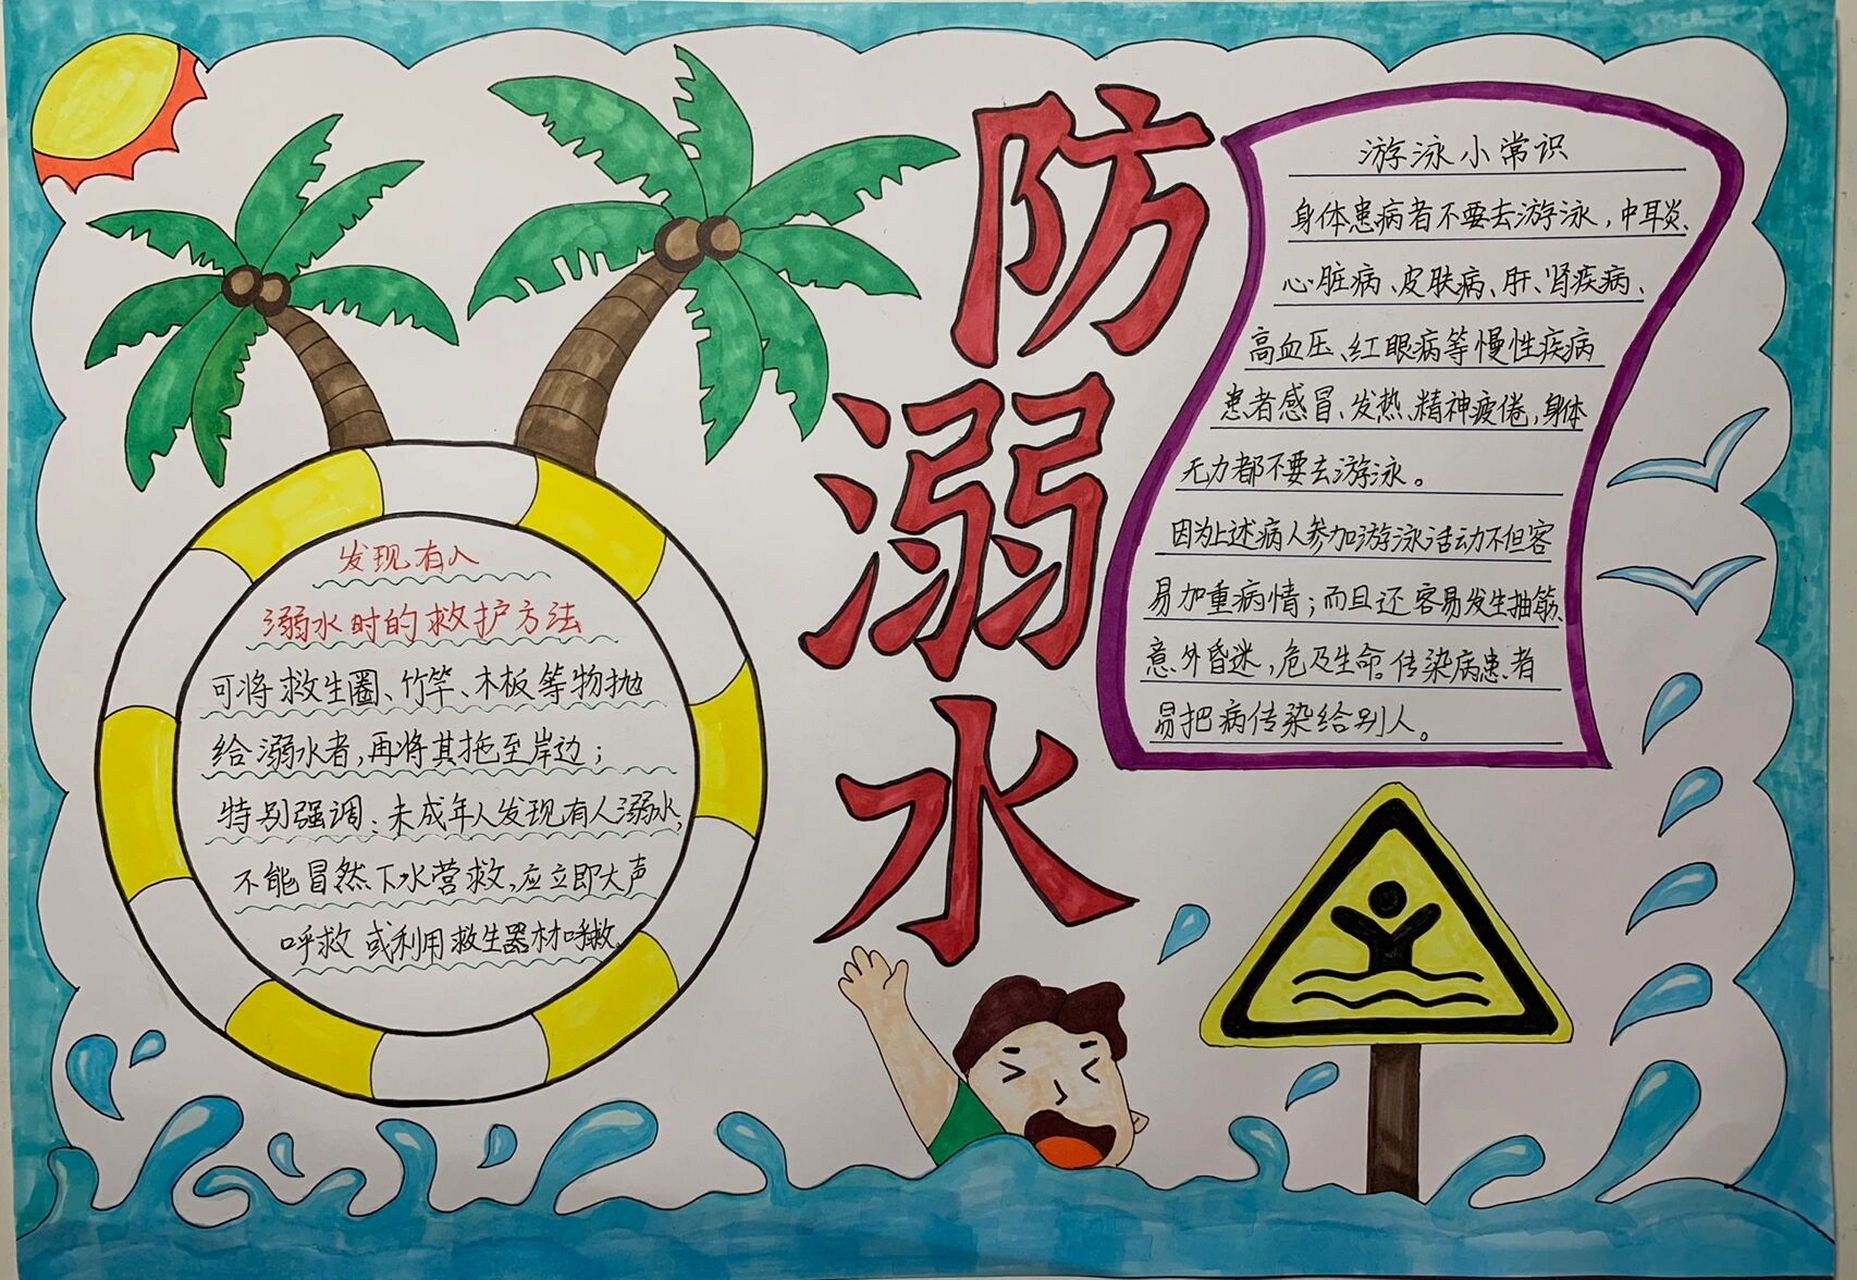 防溺水
发现有人
溺水时的救护方法
可将救生圈、竹竿、木板等物抛
给溺水者,再将其拖至岸边;
特别强调:未成年人发现有人溺水,
不能冒然下水营救,应立即大声
呼救或利用救生器材呼救。
游泳小常识
身体患病者不要去游泳,中耳炎、
心脏病、皮肤病、肝、肾疾病、
高血压、红眼病等慢性疾病
患者感冒、发热、精神疲倦,身体
无力都不要去游泳。
因为上述病人参加游泳活动不但容
易加重病情;而且还容易发生抽筋、
意外昏迷,危及生命。传染病患者
易把病传染给别人。